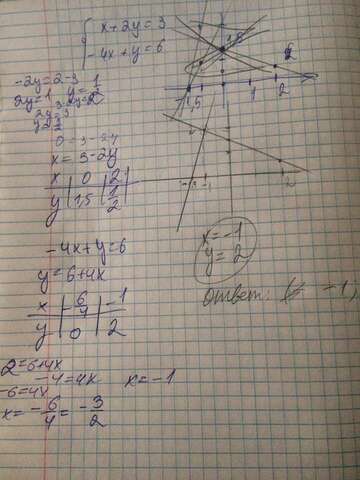 x + 2y = 3
-4x + y = 6
-2y = 2-3
2y = 1 y = 1/2
2y = 3
0 = 3-2y
x = 3-2y
x | 0 | 2
y | 1,5 | 1/2
-4x + y = 6
y = 6 + 4x
x | -6/4 | -1
y | 0 | 2
2 = 6 + 4x
-4 = 4x x = -1
-6 = 4x
x = -6/4 = -3/2
1,5
1 2
-1
x = -1
y = 2
ответ: ( -1;